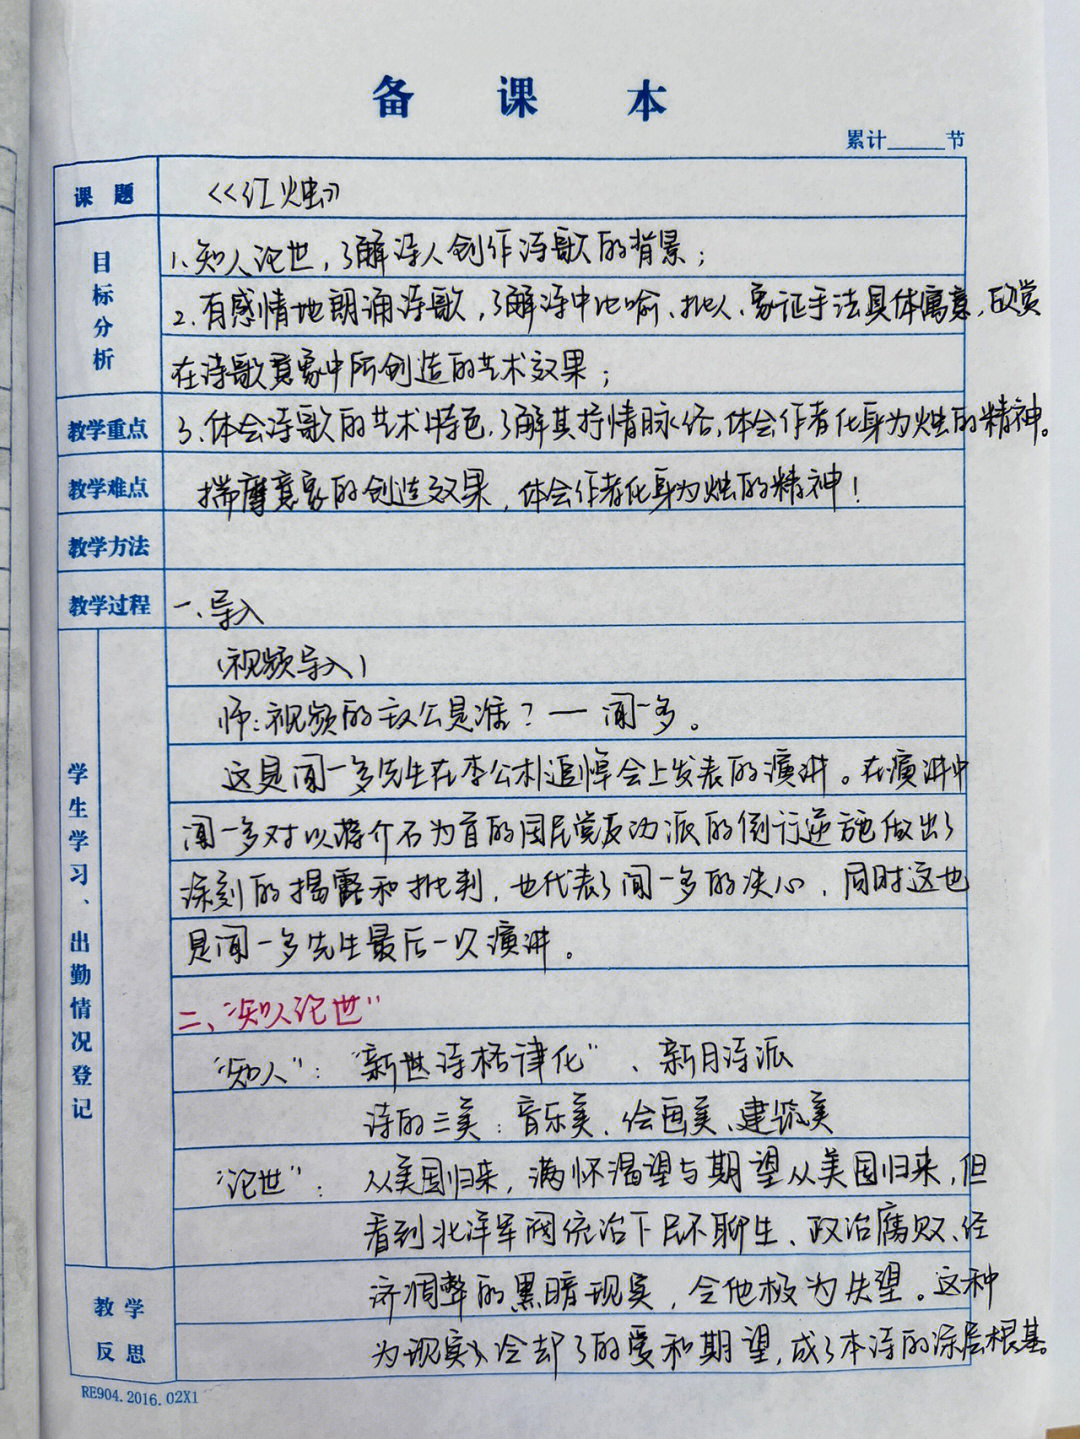 备 课 本
累计____节
课 题 《红烛》
目标分析 1、知人论世，了解诗人创作诗歌的背景；
2、有感情地朗诵诗歌，了解诗中比喻、拟人、象征手法具体寓意，欣赏
在诗歌意象中所创造的艺术效果；
教学重点 3、体会诗歌的艺术特色，了解其抒情脉络，体会作者化身为烛的精神。
教学难点 揣摩意象的创造效果，体会作者化身为烛的精神！
教学方法
教学过程 一、导入
（视频导入）
师：视频的主人公是谁？— 闻一多。
这是闻一多先生在李公朴追悼会上发表的演讲。在演讲中
闻一多对以蒋介石为首的国民党反动派的倒行逆施做出了
深刻的揭露和批判，也代表了闻一多的决心，同时这也
是闻一多先生最后一次演讲。
二、"知人论世"
"知人"： "新世诗格律化"、新月诗派
诗的三美：音乐美、绘画美、建筑美
"论世"： 从美国归来，满怀渴望与期望从美国归来，但
看到北洋军阀统治下民不聊生、政治腐败、经
济凋弊的黑暗现实，令他极为失望。这种
为现实冷却了的爱和期望，成了本诗的深层根基。
学生学习、出勤情况登记
教学反思
RE904.2016.02X1